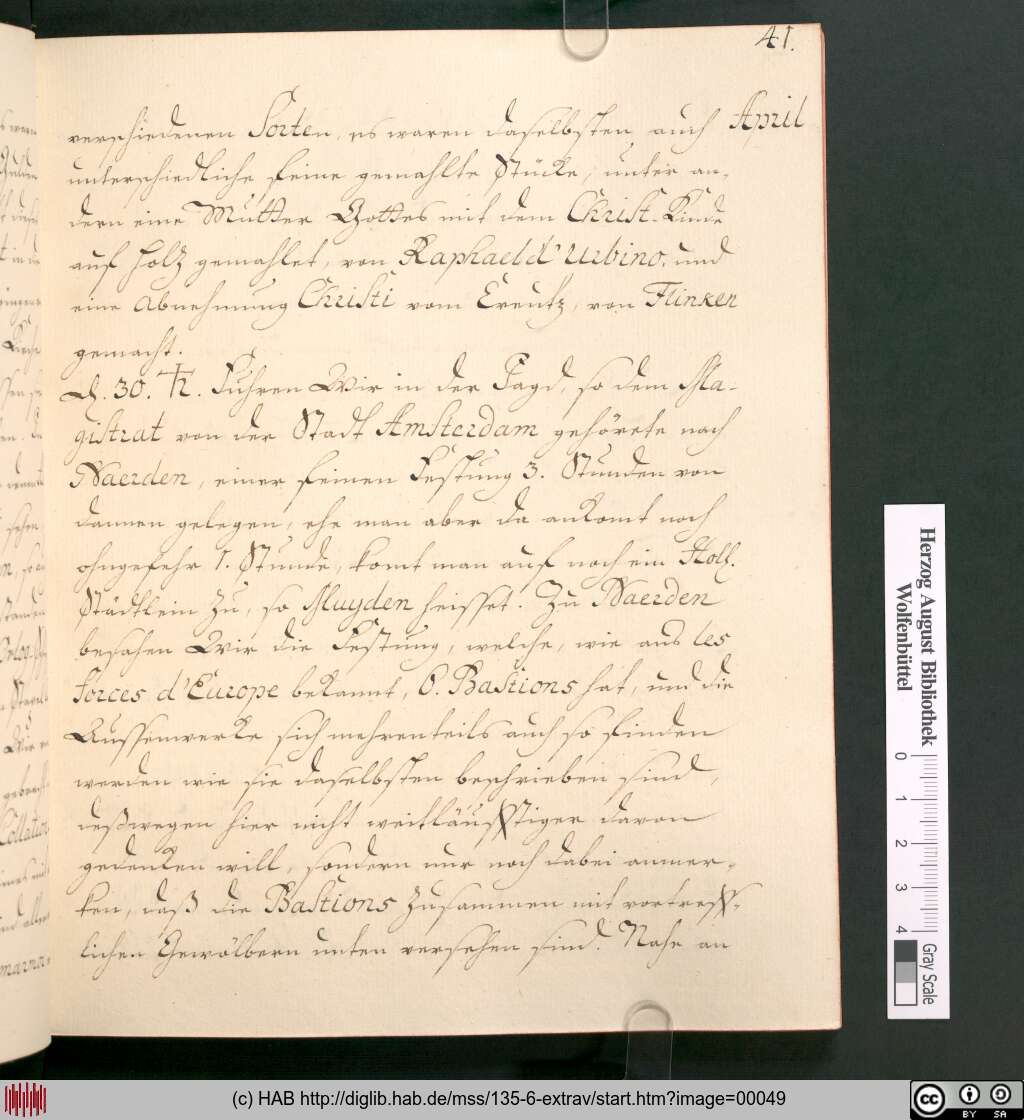 41.
April
verschiedenen Sorten, es waren daselbsten auch
unterschiedliche feine gemahlte Stücke, unter an-
dern eine Mutter Gottes mit dem Christ-Kinde
auf Holz gemahlet, von Raphael d'Urbino, und
eine Abnehmung Christi vom Creutz, von Flinken
gemacht.
D. 30. ♄. Fuhren Wir in der Jagd, so dem Ma-
gistrat von der Stadt Amsterdam gehörete nach
Naerden, einer feinen Festung 3. Stunden von
dannen gelegen, ehe man aber da ankomt noch
ohngefehr 1. Stunde, komt man auf noch ein Holl.
Städtlein zu, so Muyden heisset. Zu Naerden
besahen Wir die Festung, welche, wie aus les
forces d'Europe bekannt, 6. Bastions hat, und die
Aussenwerke sich mehrenteils auch so finden
werden wie sie daselbsten beschrieben sind,
deßwegen hier nicht weitläufftiger davon
gedenken will, sondern nur noch dabei anmer-
ken, daß die Bastions zusammen mit vortreff-
lichen Gewölbern unten versehen sind. Nahe an
Herzog August Bibliothek
Wolfenbüttel
0 1 2 3 4
Gray Scale
(c) HAB http://diglib.hab.de/mss/135-6-extrav/start.htm?image=00049
cc BY SA